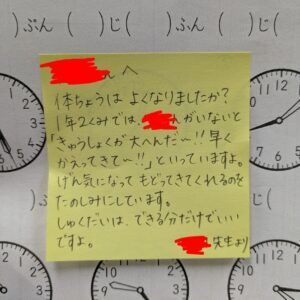 )ぷん ( )じ(
)ぷん ( )じ(
んへ
体ちょうは よくなりましたか?
1年2くみでは、 んがいないと
「きゅうしょくが大へんだ〜!!早く
かえってきて〜!!」といっていますよ。
げん気になって もどってきてくれるのを
たのしみにしています。
しゅくだいは、できる分だけでいい
ですよ。
先生より